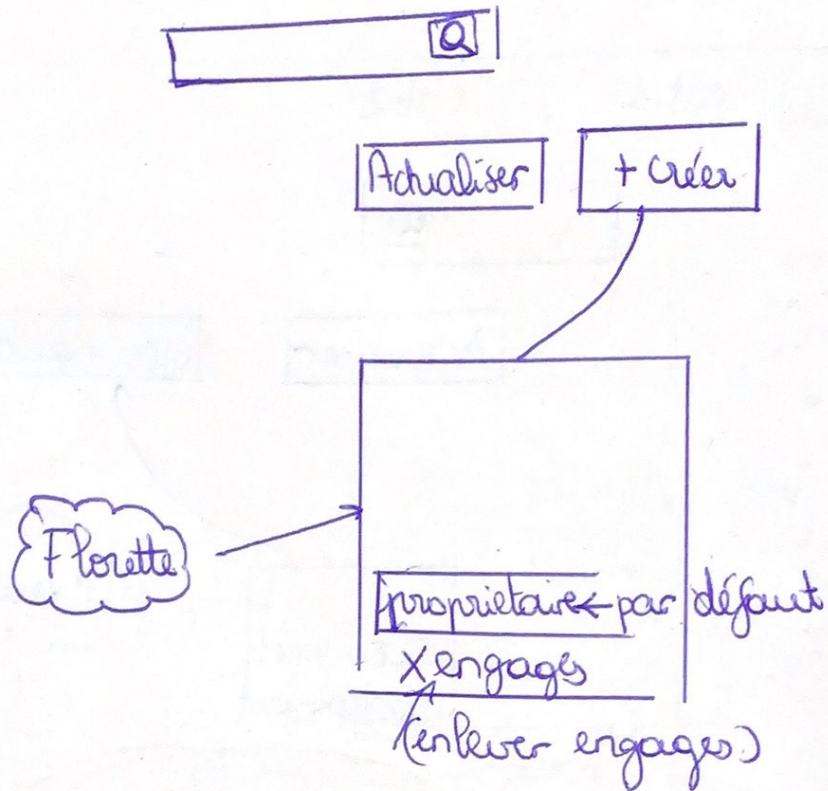 Actualiser
+ créer
Florette
propriétaire ← par défaut
x engagés
(enlever engagés)